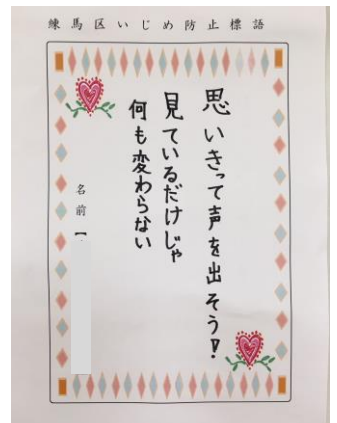 練馬区いじめ防止標語
思いきって声を出そう!
見ているだけじゃ
何も変わらない
名前【